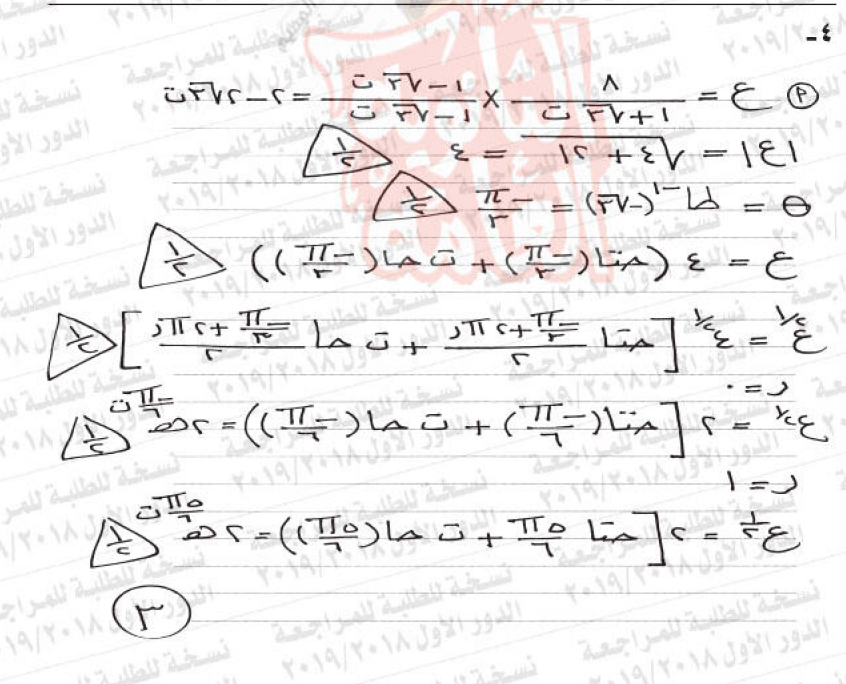 ٤-
(٩) ع = ٨ / (١ + √٣ ت) × (١ - √٣ ت) / (١ - √٣ ت) = ٢ - ٢√٣ ت
|ع| = √(٤ + ١٢) = ٤ (١/٢)
θ = طا⁻¹(-√٣) = -π/٣ (١/٢)
ع = ٤ (حتا(-π/٣) + ت حا(-π/٣)) (١/٢)
ع^(١/٢) = ٤^(١/٢) [حتا (-π/٣ + ٢πر)/٢ + ت حا (-π/٣ + ٢πر)/٢] (١/٢)
ر = ٠
ع^(١/٢) = ٢ [حتا(-π/٦) + ت حا(-π/٦)) = ٢ هـ^(-π/٦ ت) (١/٢)
ر = ١
ع^(١/٢) = ٢ [حتا ٥π/٦ + ت حا(٥π/٦)) = ٢ هـ^(٥π/٦ ت) (١/٢)
(٣)
نسخة للطلبة للمراجعة
الدور الأول ٢٠١٩/٢٠١٨